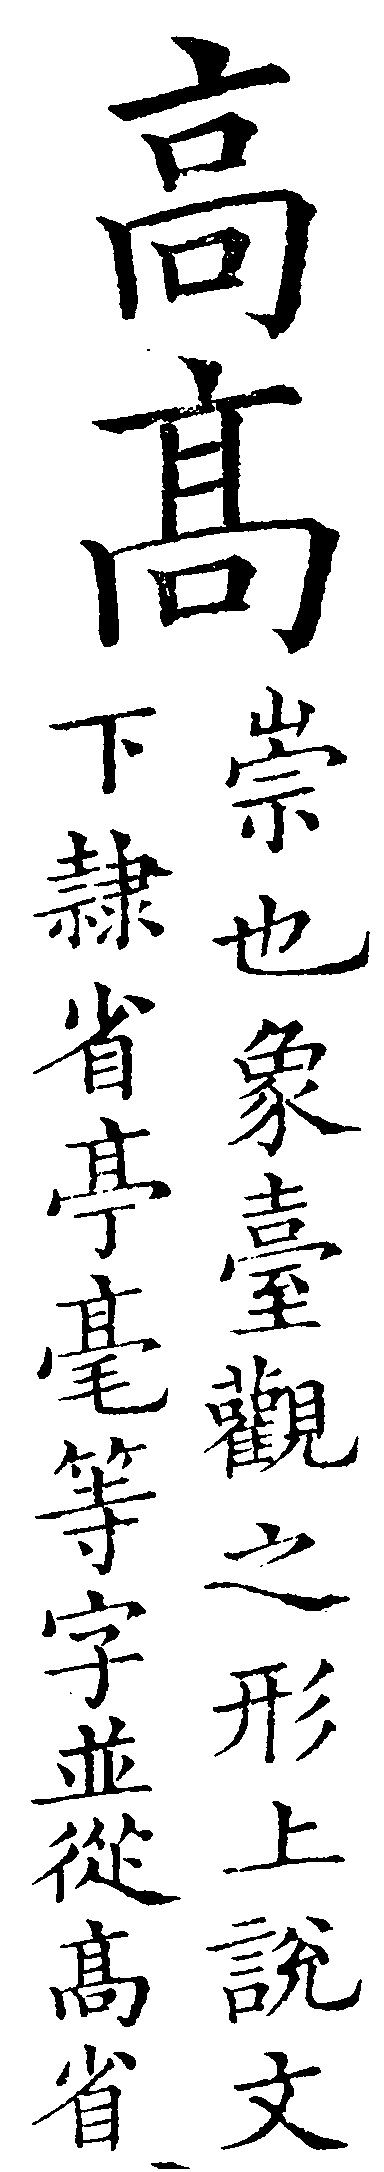 高髙
崇也象臺觀之形上說文
下隸省亭毫等字並從髙省